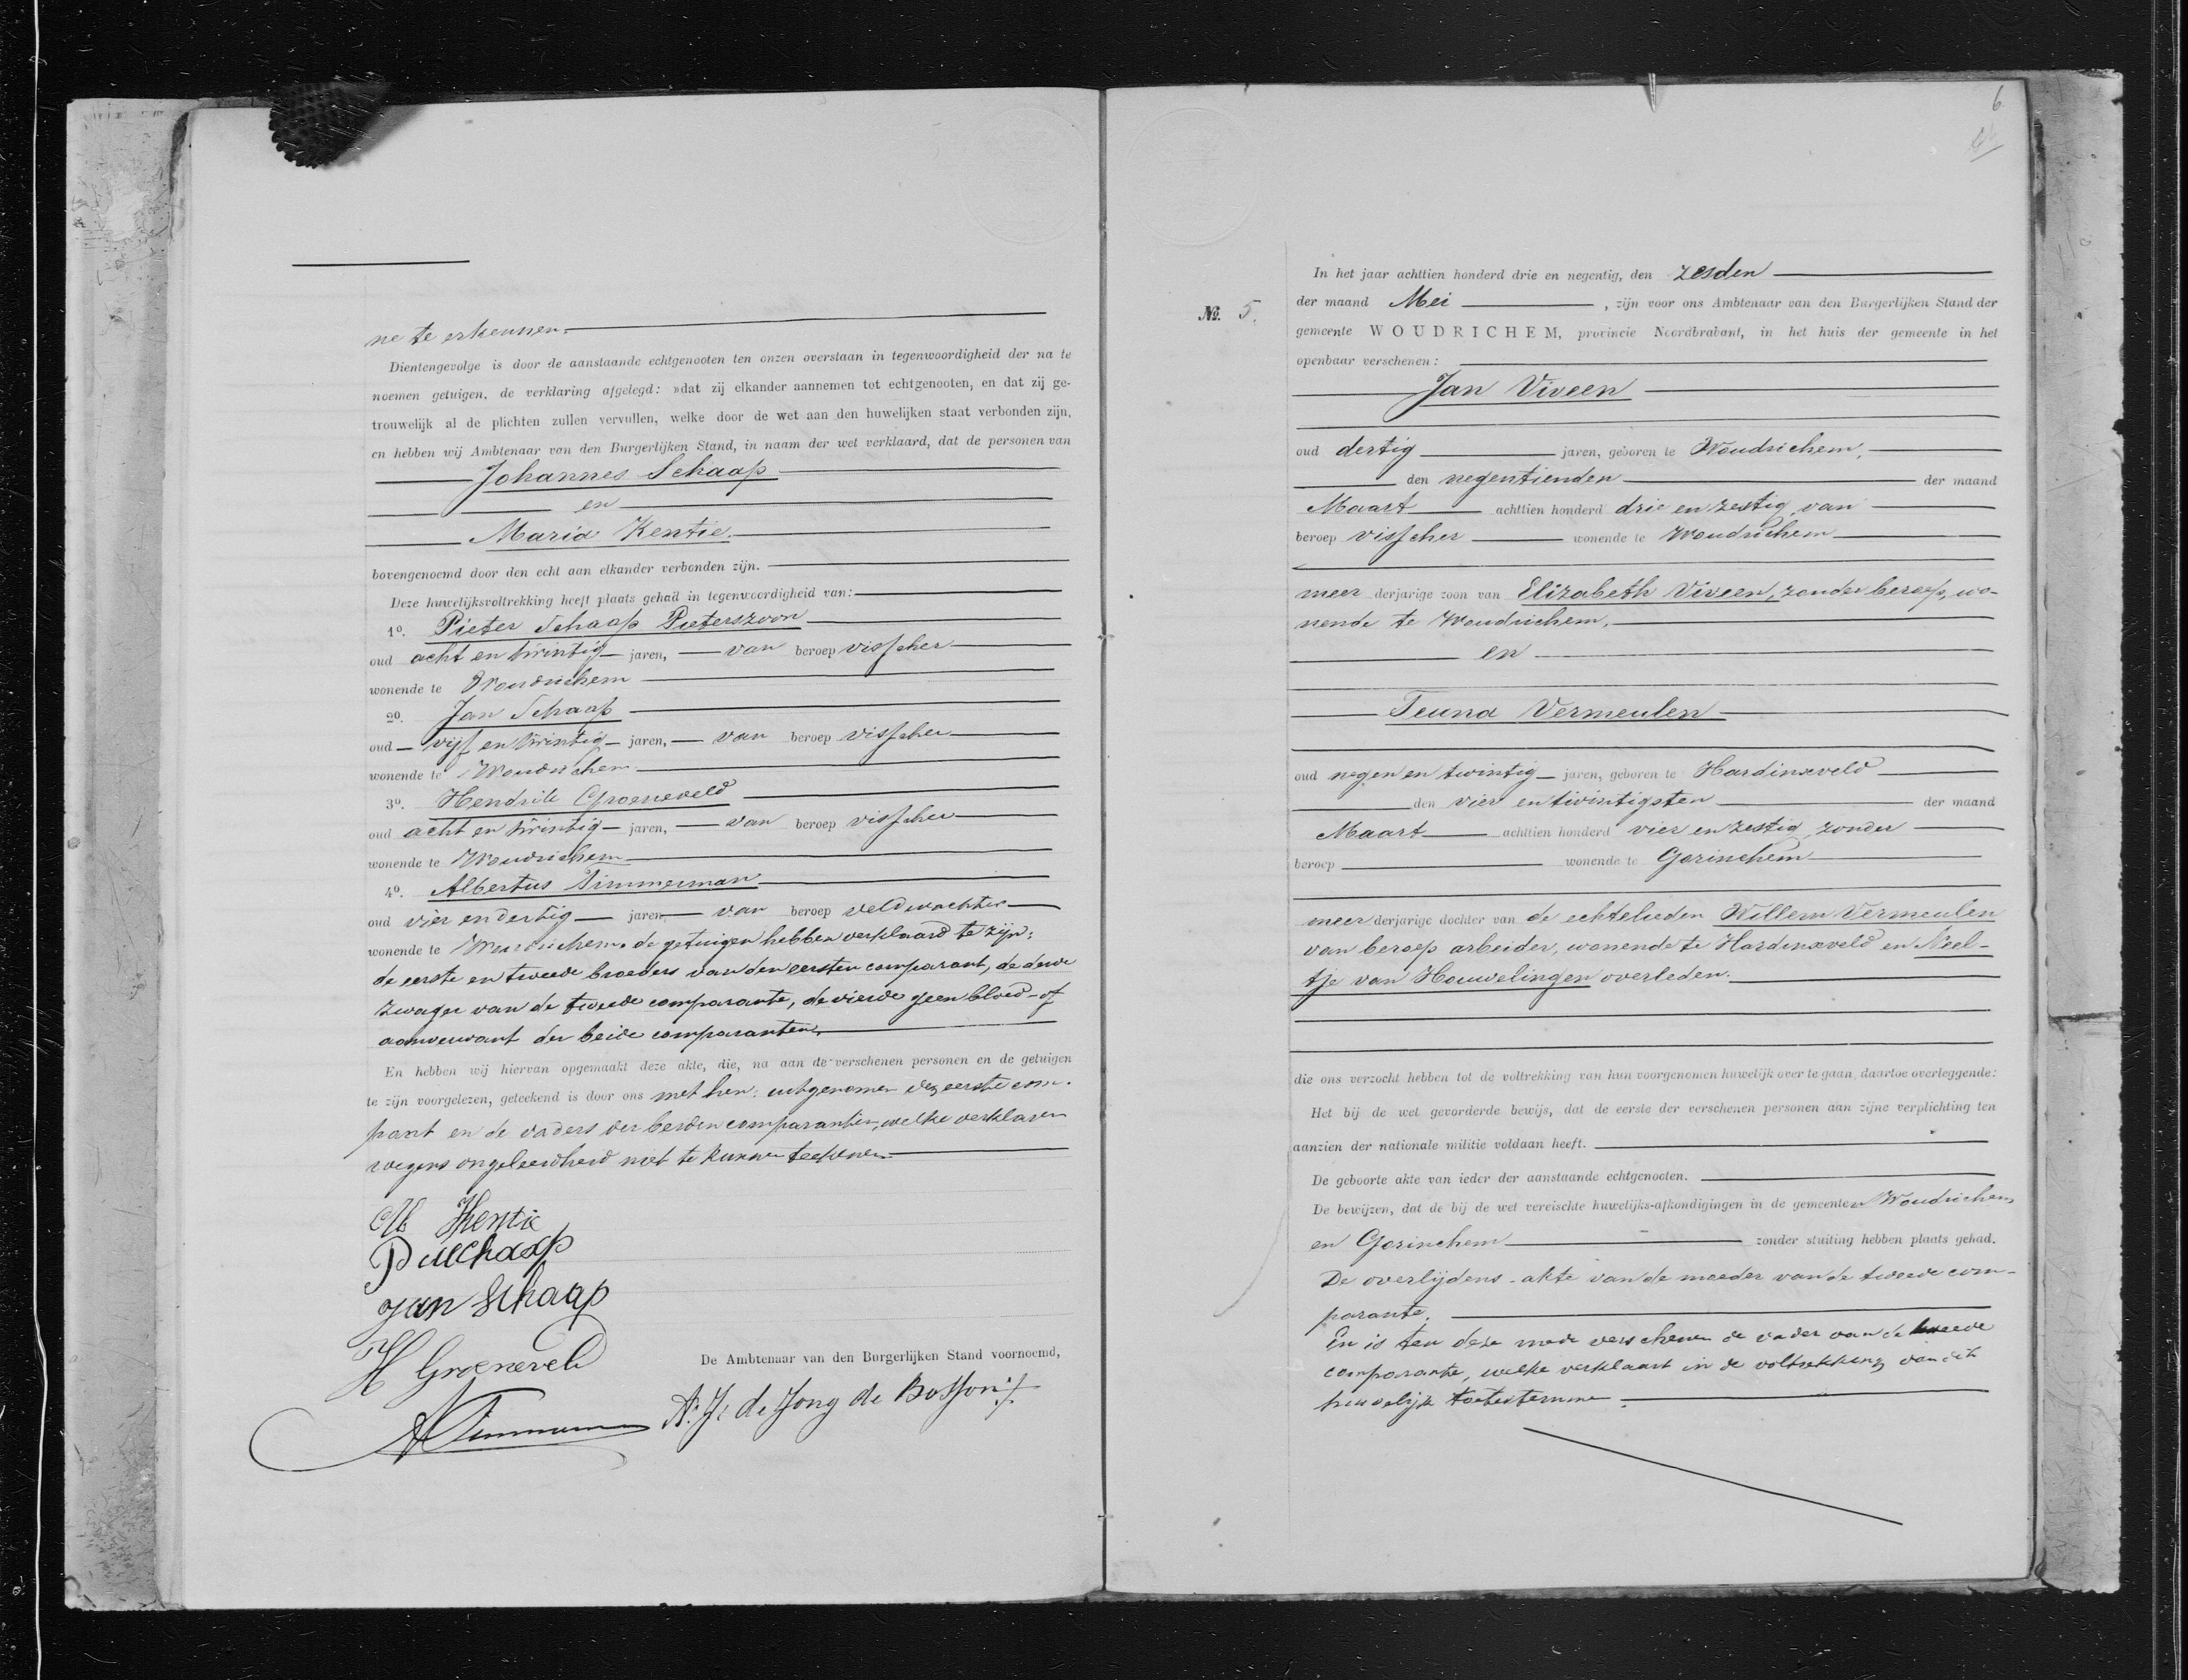 ne te erkennen.
Dientengevolge is door de aanstaande echtgenooten ten onzen overstaan in tegenwoordigheid der na te
noemen getuigen, de verklaring afgelegd: »dat zij elkander aannemen tot echtgenooten, en dat zij ge-
trouwelijk al de plichten zullen vervullen, welke door de wet aan den huwelijken staat verbonden zijn,
en hebben wij Ambtenaar van den Burgerlijken Stand, in naam der wet verklaard, dat de personen van
Johannes Schaap
en
Maria Kentie.
bovengenoemd door den echt aan elkander verbonden zijn.
Deze huwelijksvoltrekking heeft plaats gehad in tegenwoordigheid van:
1o. Pieter Schaap Pieterszoon
oud acht en twintig jaren, van beroep visscher
wonende te Woudrichem
2o. Jan Schaap
oud vijf en twintig jaren, van beroep visscher
wonende te Woudrichem
3o. Hendrik Groeneveld
oud acht en twintig jaren, van beroep visscher
wonende te Woudrichem
4o. Albertus Timmerman
oud vier en dertig jaren, van beroep veldwachter
wonende te Woudrichem. de getuigen hebben verklaard te zijn:
de eerste en tweede broeders van den eersten comparant, de derde
zwager van de tweede comparante, de vierde geen bloed- of
aanverwant der beide comparanten.
En hebben wij hiervan opgemaakt deze akte, die, na aan de verschenen personen en de getuigen
te zijn voorgelezen, geteekend is door ons met hen, uitgenomen de eerste com-
parant en de vaders der beiden comparanten, welke verklaren
wegens ongeleerdheid niet te kunnen teekenen.
M Kentie
P Schaap
Jan Schaap
H Groeneveld
De Ambtenaar van den Burgerlijken Stand voornoemd,
A Timmerman
A. J. de Jong de Bosson
6
No. 5.
In het jaar achttien honderd drie en negentig, den zesden
der maand Mei, zijn voor ons Ambtenaar van den Burgerlijken Stand der
gemeente WOUDRICHEM, provincie Noordbrabant, in het huis der gemeente in het
openbaar verschenen:
Jan Viveen
oud dertig jaren, geboren te Woudrichem,
den negentienden der maand
Maart achttien honderd drie en zestig, van
beroep visscher wonende te Woudrichem
meer derjarige zoon van Elizabeth Viveen, zonder beroep, wo-
nende te Woudrichem,
en
Teuna Vermeulen
oud negen en twintig jaren, geboren te Hardinxveld
den vier en twintigsten der maand
Maart achttien honderd vier en zestig, zonder
beroep wonende te Gorinchem
meer derjarige dochter van de echtelieden Willem Vermeulen
van beroep arbeider, wonende te Hardinxveld en Neel-
tje van Houwelingen overleden.
die ons verzocht hebben tot de voltrekking van hun voorgenomen huwelijk over te gaan, daartoe overleggende:
Het bij de wet gevorderde bewijs, dat de eerste der verschenen personen aan zijne verplichting ten
aanzien der nationale militie voldaan heeft.
De geboorte akte van ieder der aanstaande echtgenooten.
De bewijzen, dat de bij de wet vereischte huwelijks-afkondigingen in de gemeenten Woudrichem
en Gorinchem zonder stuiting hebben plaats gehad.
De overlijdens-akte van de moeder van de tweede com-
parante.
En is ten deze mede verschenen de vader van de tweede
comparante, welke verklaart in de voltrekking van dit
huwelijk toetestemmen.